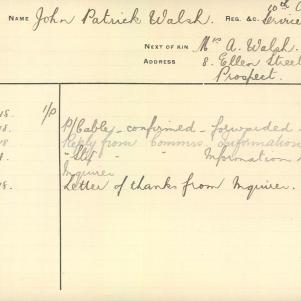 10th
NAME John Patrick Walsh. REG. &c. Service
NEXT OF KIN Mrs A. Walsh.
ADDRESS 8. Ellen Street
Prospect.
18. 1/P
18. P/Cable - confirmed - forwarded
18 Reply from Commrs. Information
8. " Slip " " Information
Inquirer
18. Letter of thanks from Inquirer.